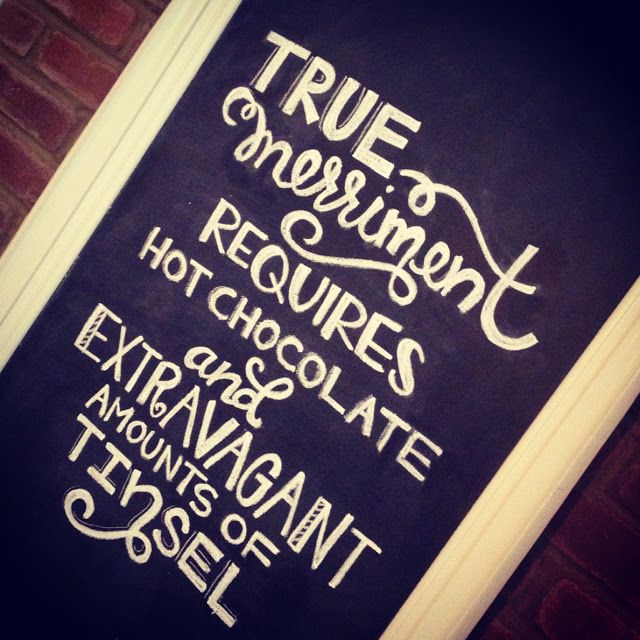 TRUE
merriment
REQUIRES
HOT CHOCOLATE
and
EXTRAVAGANT
AMOUNTS OF
TINSEL